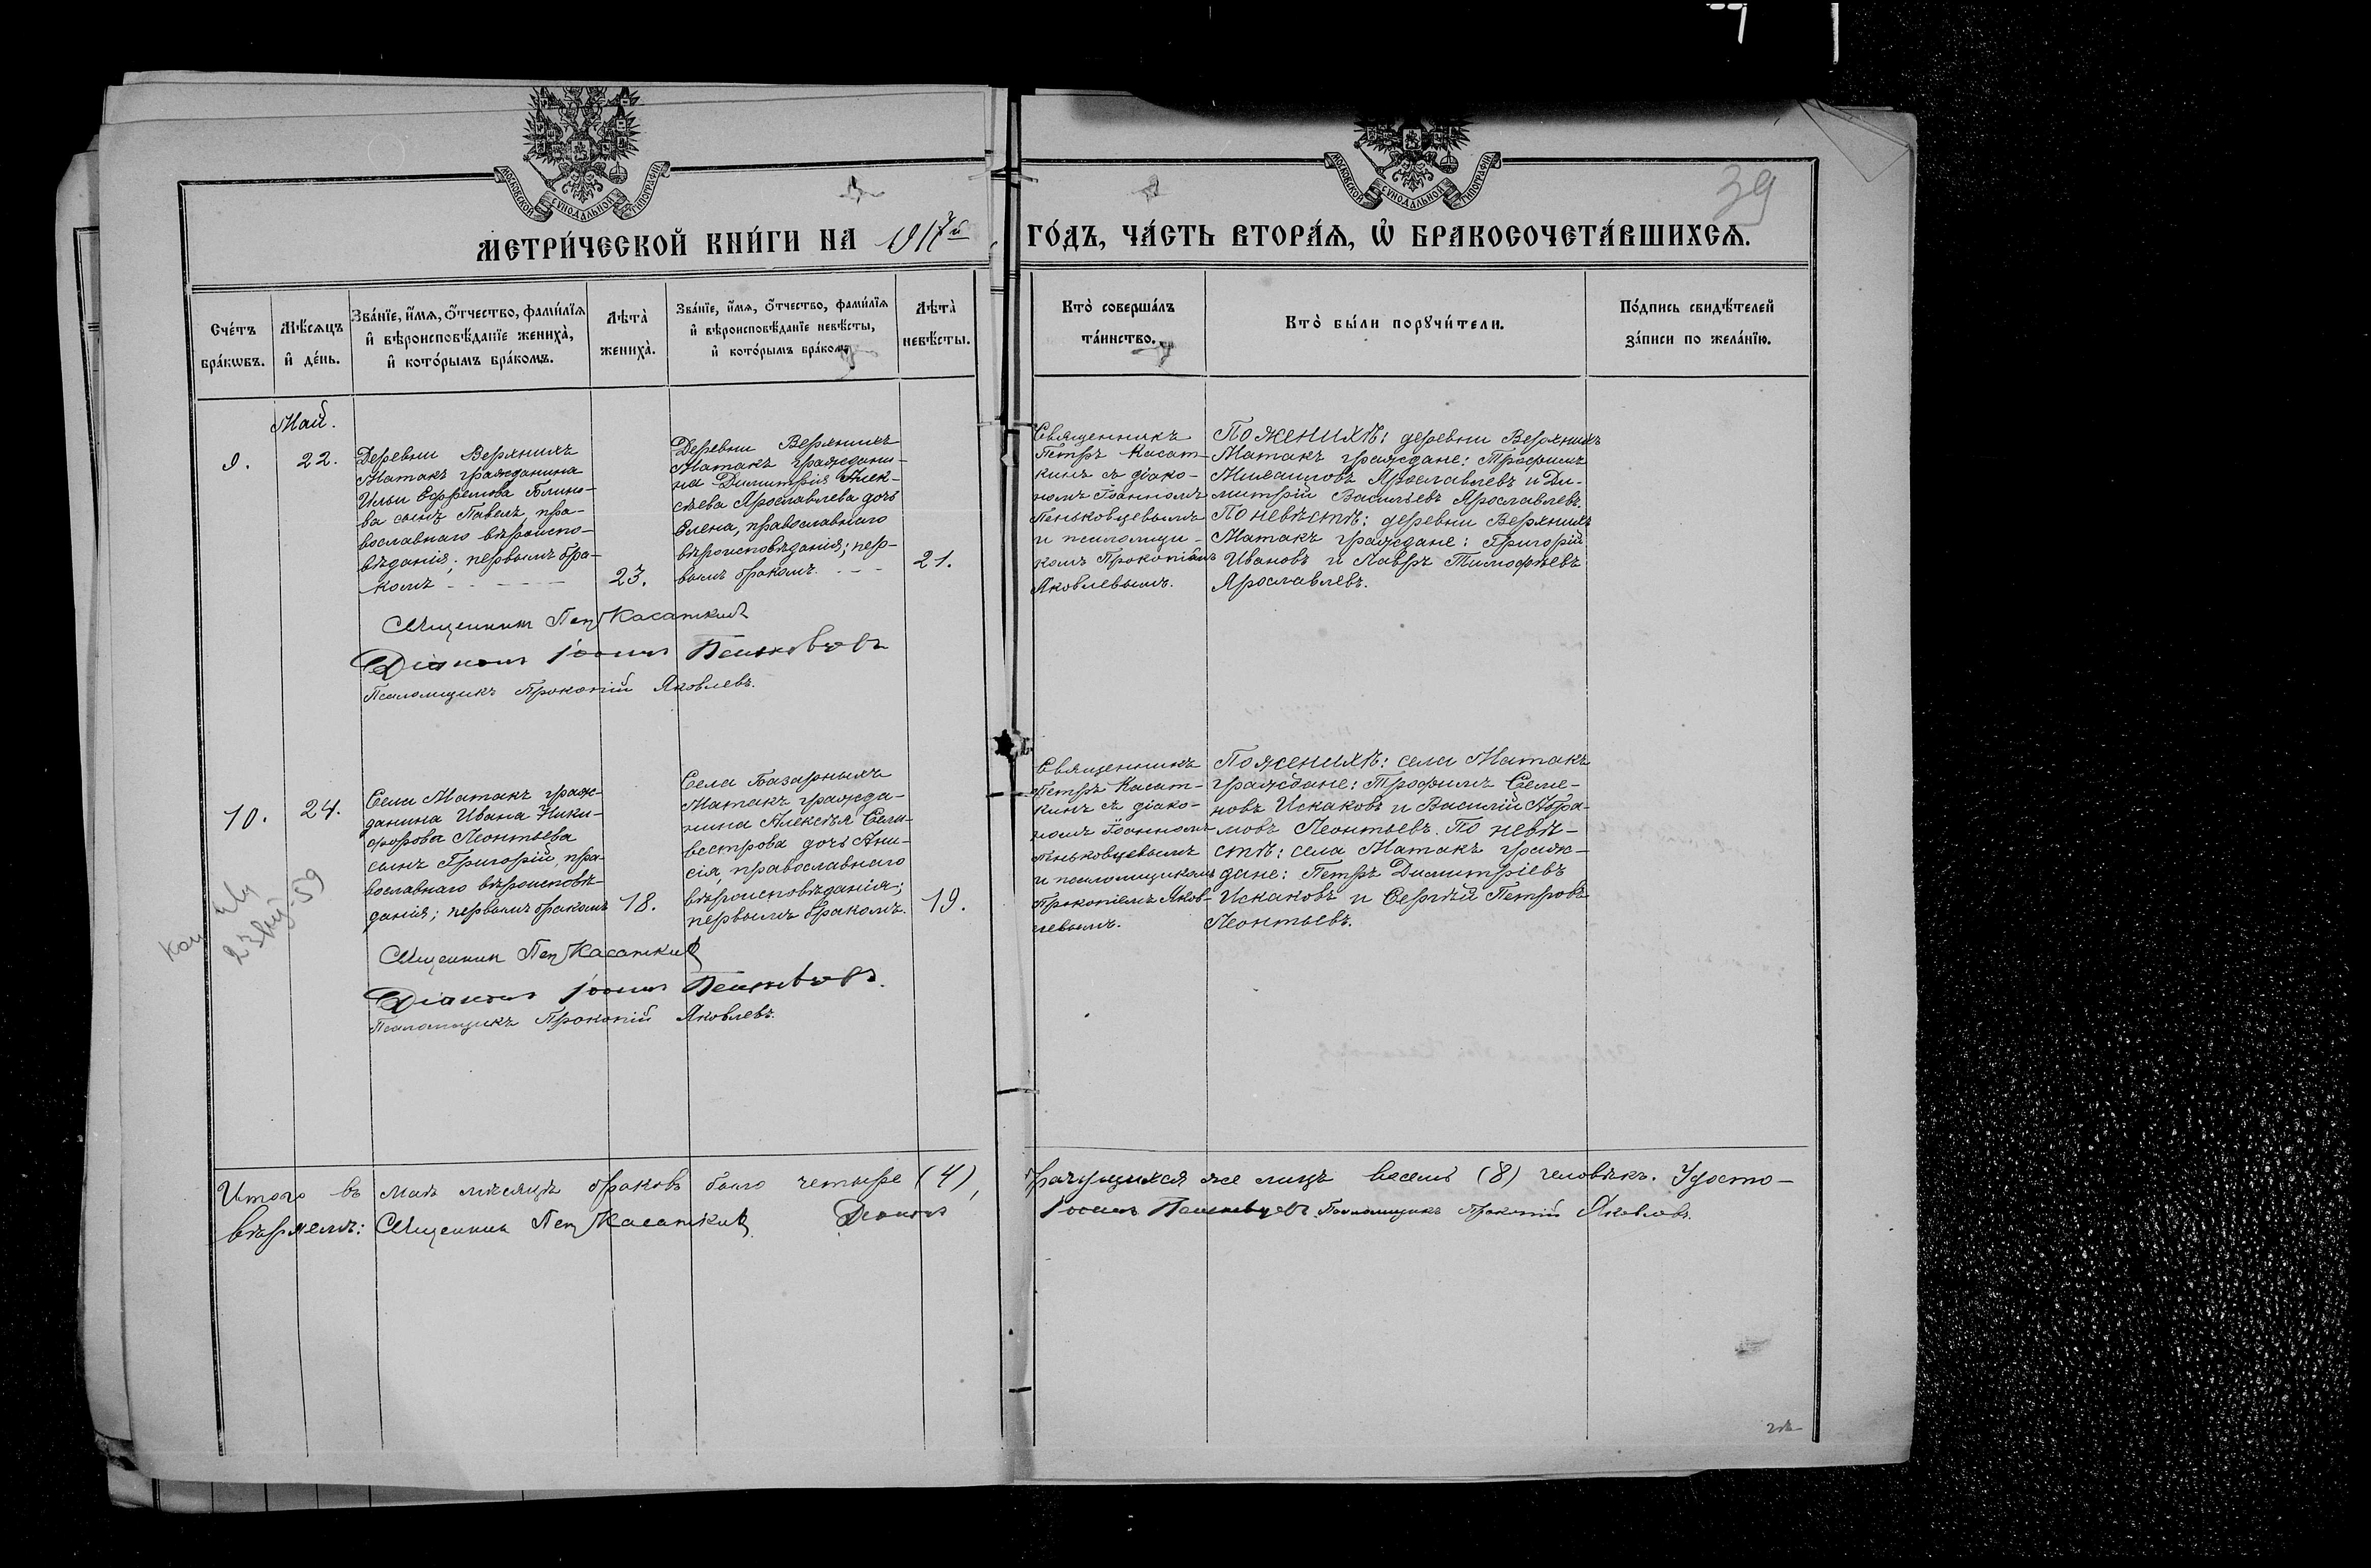 МОСКОВСКОЙ СѴНОДАЛЬНОЙ ТИПОГРАФІИ
МОСКОВСКОЙ СѴНОДАЛЬНОЙ ТИПОГРАФІИ
39
МЕТРИ́ЧЕСКОЙ КНИ́ГИ НА 1917й
ГО́ДЪ, ЧА́СТЬ ВТОРА́Ѧ, Ѡ҆ БРАКОСОЧЕТА́ВШИХСѦ.
Сче́тъ бра́кѡвъ.
Мѣ́сѧцъ и҆ де́нь.
Зва́нїе, и҆́мѧ, ѻ҆́тчество, фами́лїѧ и҆ вѣроисповѣ́данїе жениха̀, и҆ кото́рымъ бра́комъ.
Лѣта̀ жениха̀.
Зва́нїе, и҆́мѧ, ѻ҆́тчество, фами́лїѧ и҆ вѣроисповѣ́данїе невѣ́сты, и҆ кото́рымъ бра́комъ
Лѣта̀ невѣ́сты.
Кто̀ соверша́лъ та́инство.
Кто̀ бы́ли порꙋчи́тели.
По́дпись свидѣ́телей за́писи по жела́нїю.
Май.
9.
22.
Деревни Верхнихъ
Матакъ гражданина
Ильи Ефремова Блино-
ва сынъ Павелъ, пра-
вославнаго вѣроиспо-
вѣданія; первымъ бра-
комъ
23.
Деревни Верхнихъ
Матакъ граждани-
на Димитрія Алек-
сѣева Ярославлева дочь
Елена, православнаго
вѣроисповѣданія; пер-
вымъ бракомъ.
21.
Священникъ
Петръ Касат-
кинъ съ діако-
номъ Іоанномъ
Пеньковцевымъ
и псаломщи-
комъ Прокопіемъ
Яковлевымъ.
По женихѣ: деревни Верхнихъ
Матакъ граждане: Трофимъ
Ярославлевъ и Ди-
митрій Васильевъ Ярославлевъ.
По невѣстѣ: деревни Верхнихъ
Матакъ граждане: Григорій
Ивановъ и Лавръ Тимофѣевъ
Ярославлевъ.
Священникъ Петръ Касаткинъ
Діаконъ Іоаннъ Пеньковцевъ
Псаломщикъ Прокопій Яковлевъ.
10.
24.
Села Матакъ граж-
данина Ивана Ники-
форова Леонтьева
сынъ Григорій, пра-
вославнаго вѣроисповѣ-
данія; первымъ бракомъ
18.
Села Базарныхъ
Матакъ гражда-
нина Алексѣя Сели-
вестрова дочь Ани-
сія, православнаго
вѣроисповѣданія;
первымъ бракомъ.
19.
Священникъ
Петръ Касат-
кинъ съ діако-
номъ Іоанномъ
Пеньковцевымъ
и псаломщикомъ
Прокопіемъ Яков-
левымъ.
По женихѣ: села Матакъ
граждане: Трофимъ Семе-
новъ Искаковъ и Василій Абра-
мовъ Леонтьевъ. По невѣ-
стѣ: села Матакъ граж-
дане: Петръ Димитріевъ
Искаковъ и Сергѣй Петровъ
Леонтьевъ.
Священникъ Петръ Касаткинъ
Діаконъ Іоаннъ Пеньковцевъ.
Псаломщикъ Прокопій Яковлевъ.
Итого въ маѣ мѣсяцѣ браковъ было четыре (4),
брачущихся же лицъ восемь (8) человѣкъ. Удосто-
вѣряемъ: Священникъ Петръ Касаткинъ Діаконъ
Іоаннъ Пеньковцевъ. Псаломщикъ Прокопій Яковлевъ.